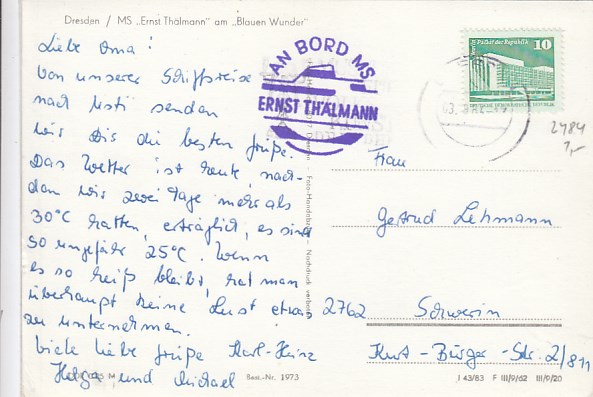 Dresden / MS „Ernst Thälmann" am „Blauen Wunder"
Liebe Oma!
Von unserer Schiffsreise
nach Usti senden
wir Dir die besten Grüße.
Das Wetter ist heute, nach-
dem wir zwei Tage mehr als
30°C hatten, erträglich, es sind
so ungefähr 25°C. Wenn
es so heiß bleibt, hat man
überhaupt keine Lust etwas
zu unternehmen.
Viele liebe Grüße Karl-Heinz
Helga und Michael
AN BORD MS
ERNST THÄLMANN
Palast der Republik 10
2484
1,-
Frau
Gertrud Lehmann
2762 Schwerin
Kurt-Bürger-Str. 2/811
Best.-Nr. 1973
I 43/83 F III/9/62 III/9/20